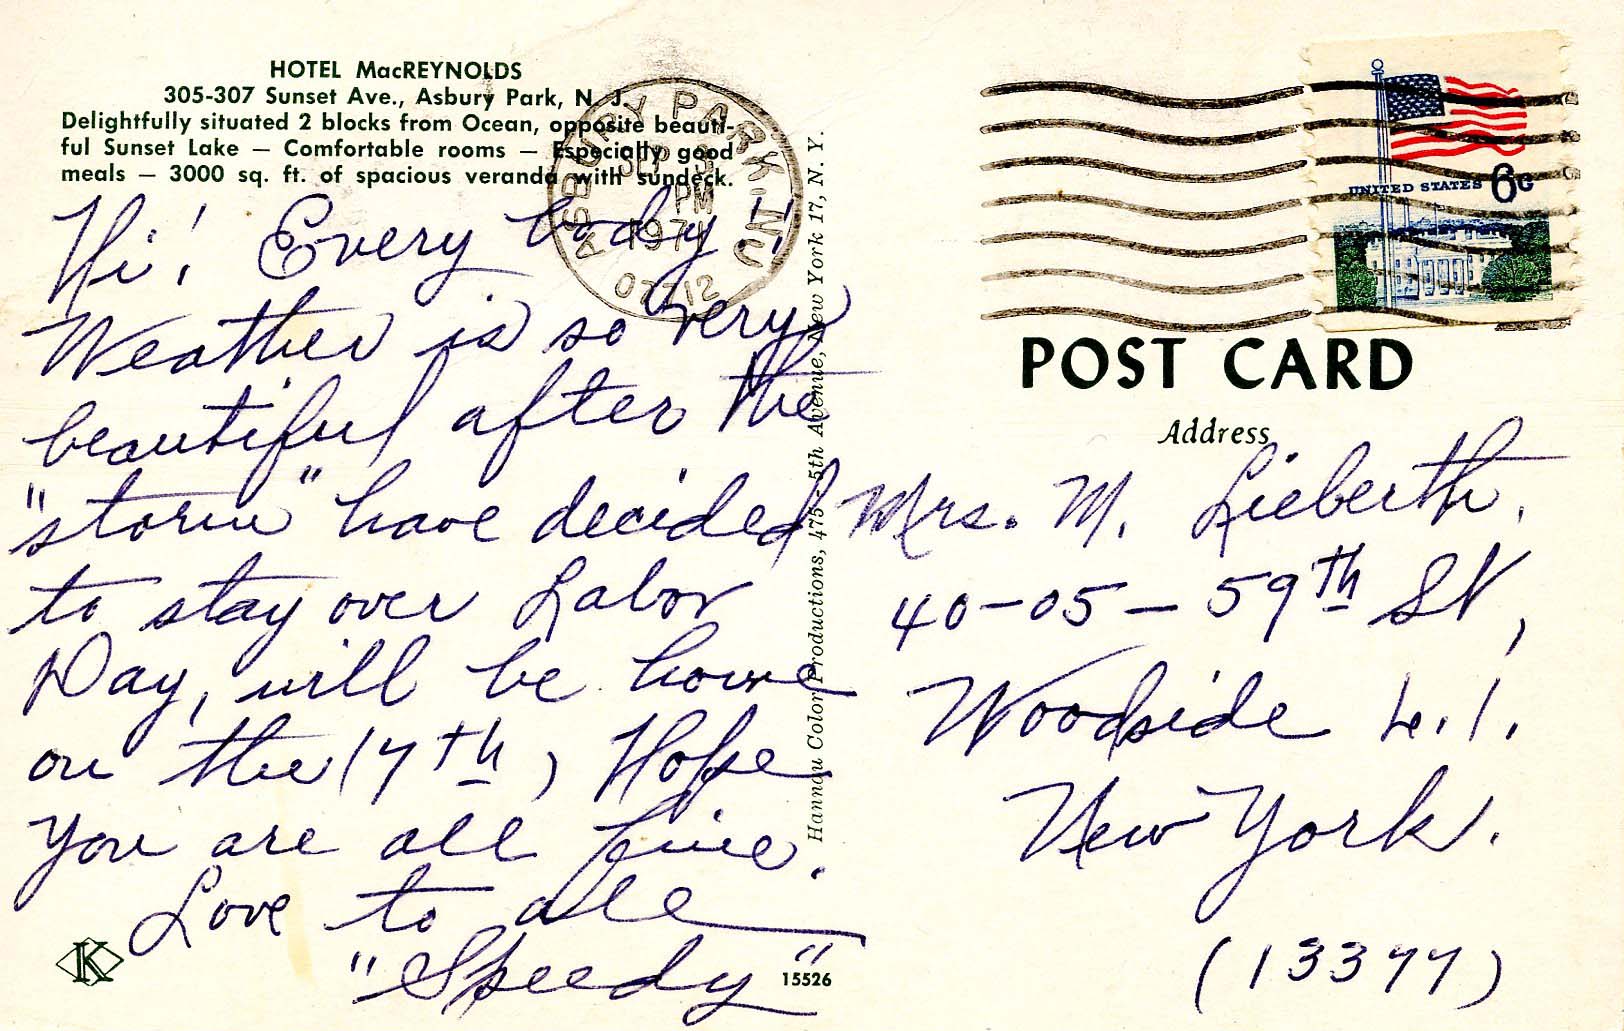 HOTEL MacREYNOLDS
305-307 Sunset Ave., Asbury Park, N. J.
Delightfully situated 2 blocks from Ocean, opposite beauti-
ful Sunset Lake — Comfortable rooms — Especially good
meals — 3000 sq. ft. of spacious veranda with sundeck.
Hi! Every body!!
Weather is so very
beautiful after the
"storm" have decided
to stay over Labor
Day, will be home
on the 17th, Hope
you are all fine.
Love to all
"Speedy"
K
15526
Hannau Color Productions, 475 - 5th Avenue, New York 17, N. Y.
ASBURY PARK, NJ
SEP
PM
197
UNITED STATES 6¢
POST CARD
Address
Mrs. M. Lieberth.
40-05-59th St,
Woodside L.I.
New York.
(13377)